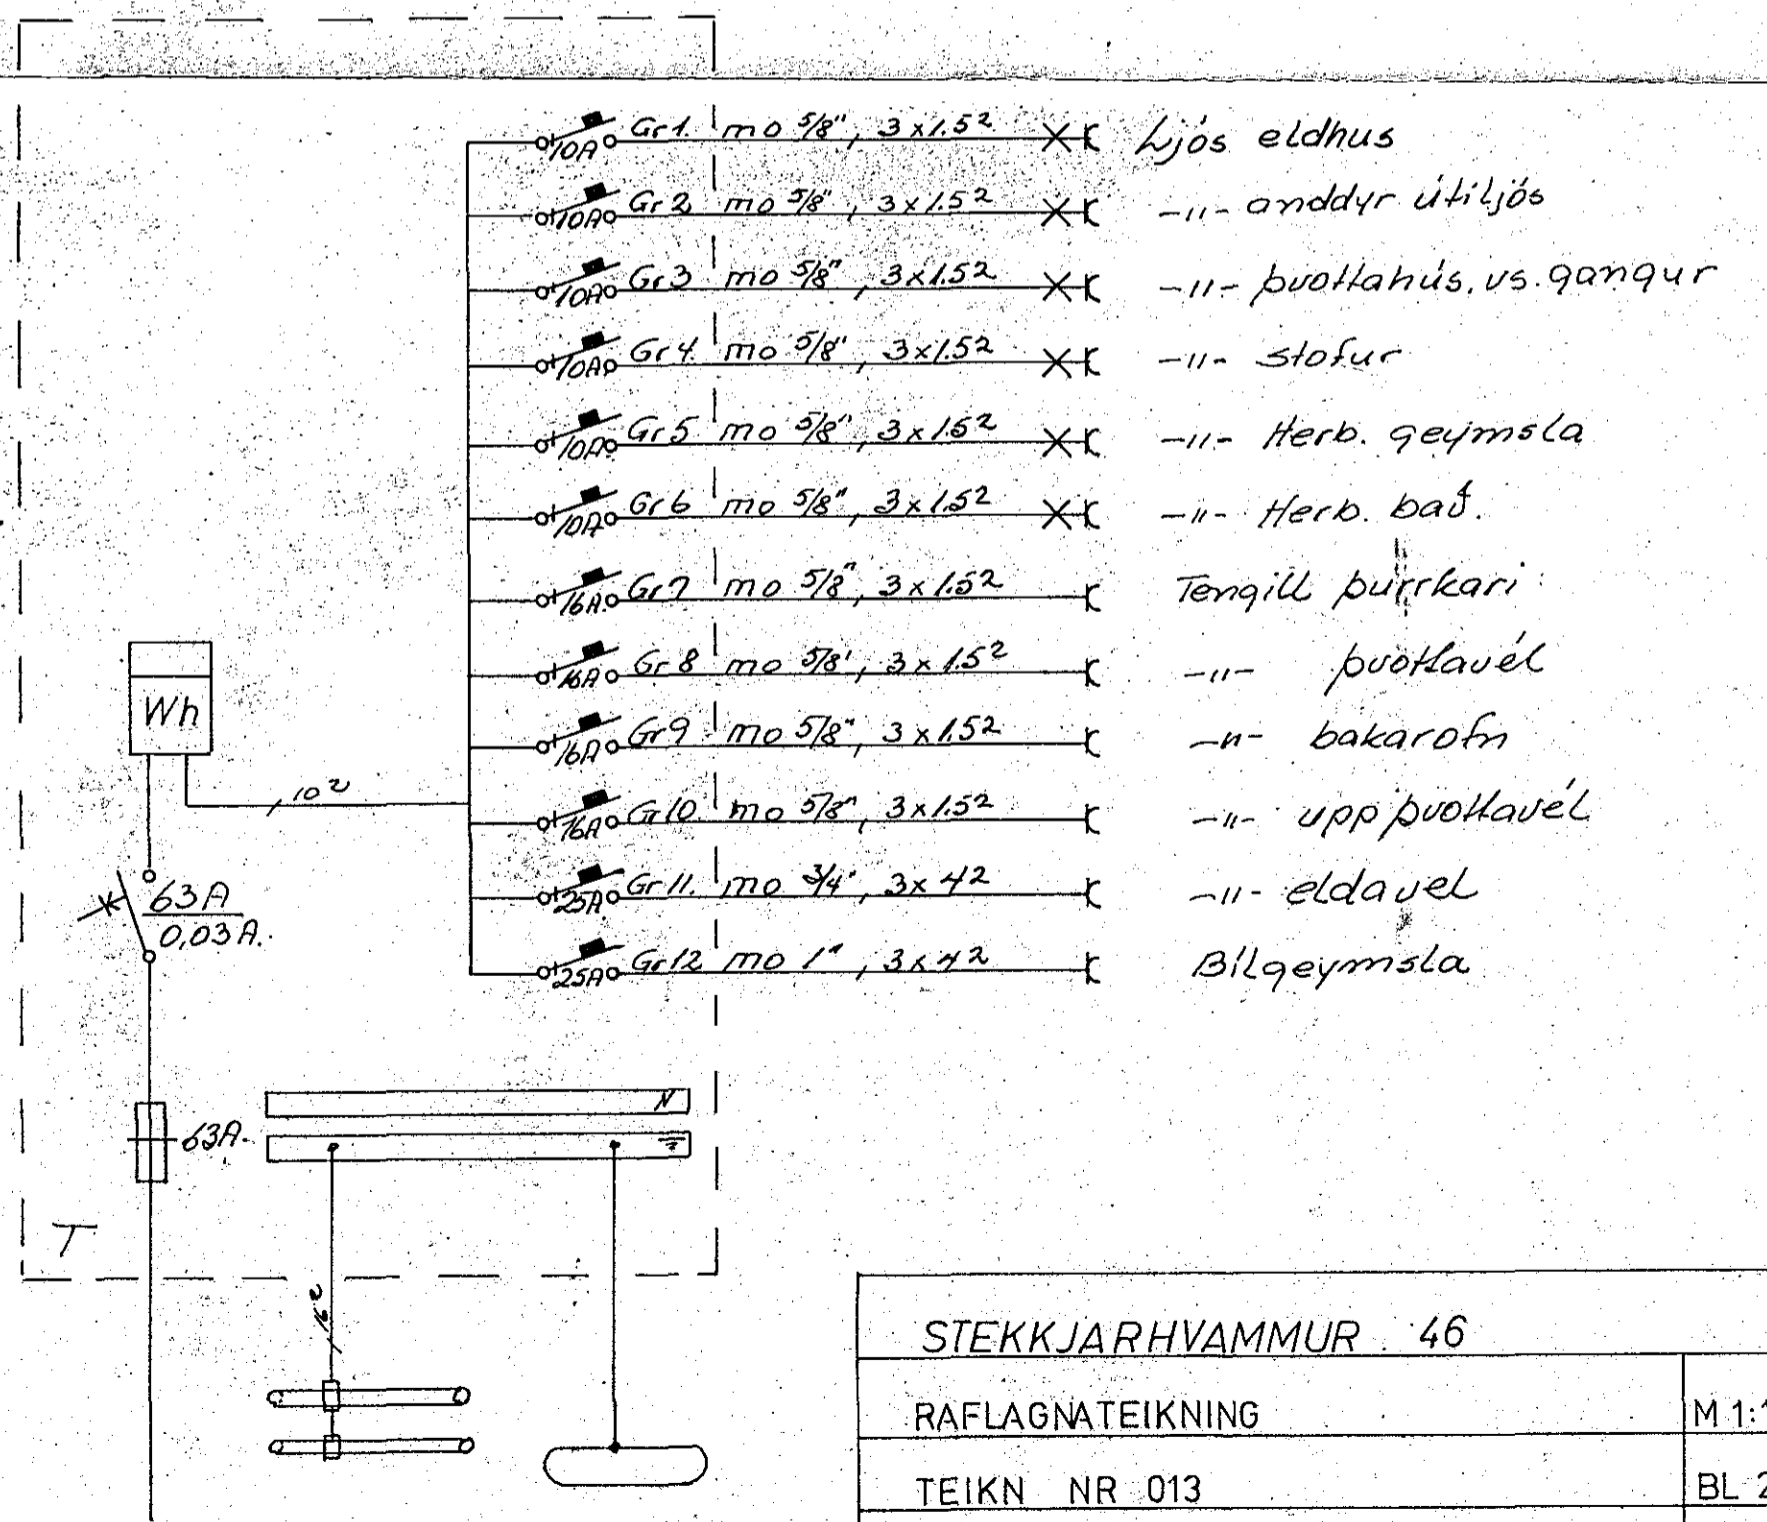 10A Gr1. mo 5/8", 3x1.5² Ljós eldhus
10A Gr2 mo 5/8", 3x1.5² -"- anddyr útiljós
10A Gr3 mo 5/8", 3x1.5² -"- þvottahús, vs. gangur
10A Gr4. mo 5/8", 3x1.5² -"- stofur
10A Gr5 mo 5/8", 3x1.5² -"- Herb. geymsla
10A Gr6 mo 5/8", 3x1.5² -"- Herb. bað.
16A Gr7 mo 5/8", 3x1.5² Tengill þurrkari
16A Gr8 mo 5/8', 3x1.5² -"- þvottavél
16A Gr9 mo 5/8", 3x1.5² -"- bakarofn
16A Gr10. mo 5/8", 3x1.5² -"- uppþvottavél
25A Gr11. mo 3/4", 3x4² -"- eldavel
25A Gr12 mo 1", 3x4² Bílgeymsla
Wh
10²
63A
0,03A.
N
63A.
T
16²
STEKKJARHVAMMUR 46
RAFLAGNATEIKNING M 1:1
TEIKN NR 013 BL 2